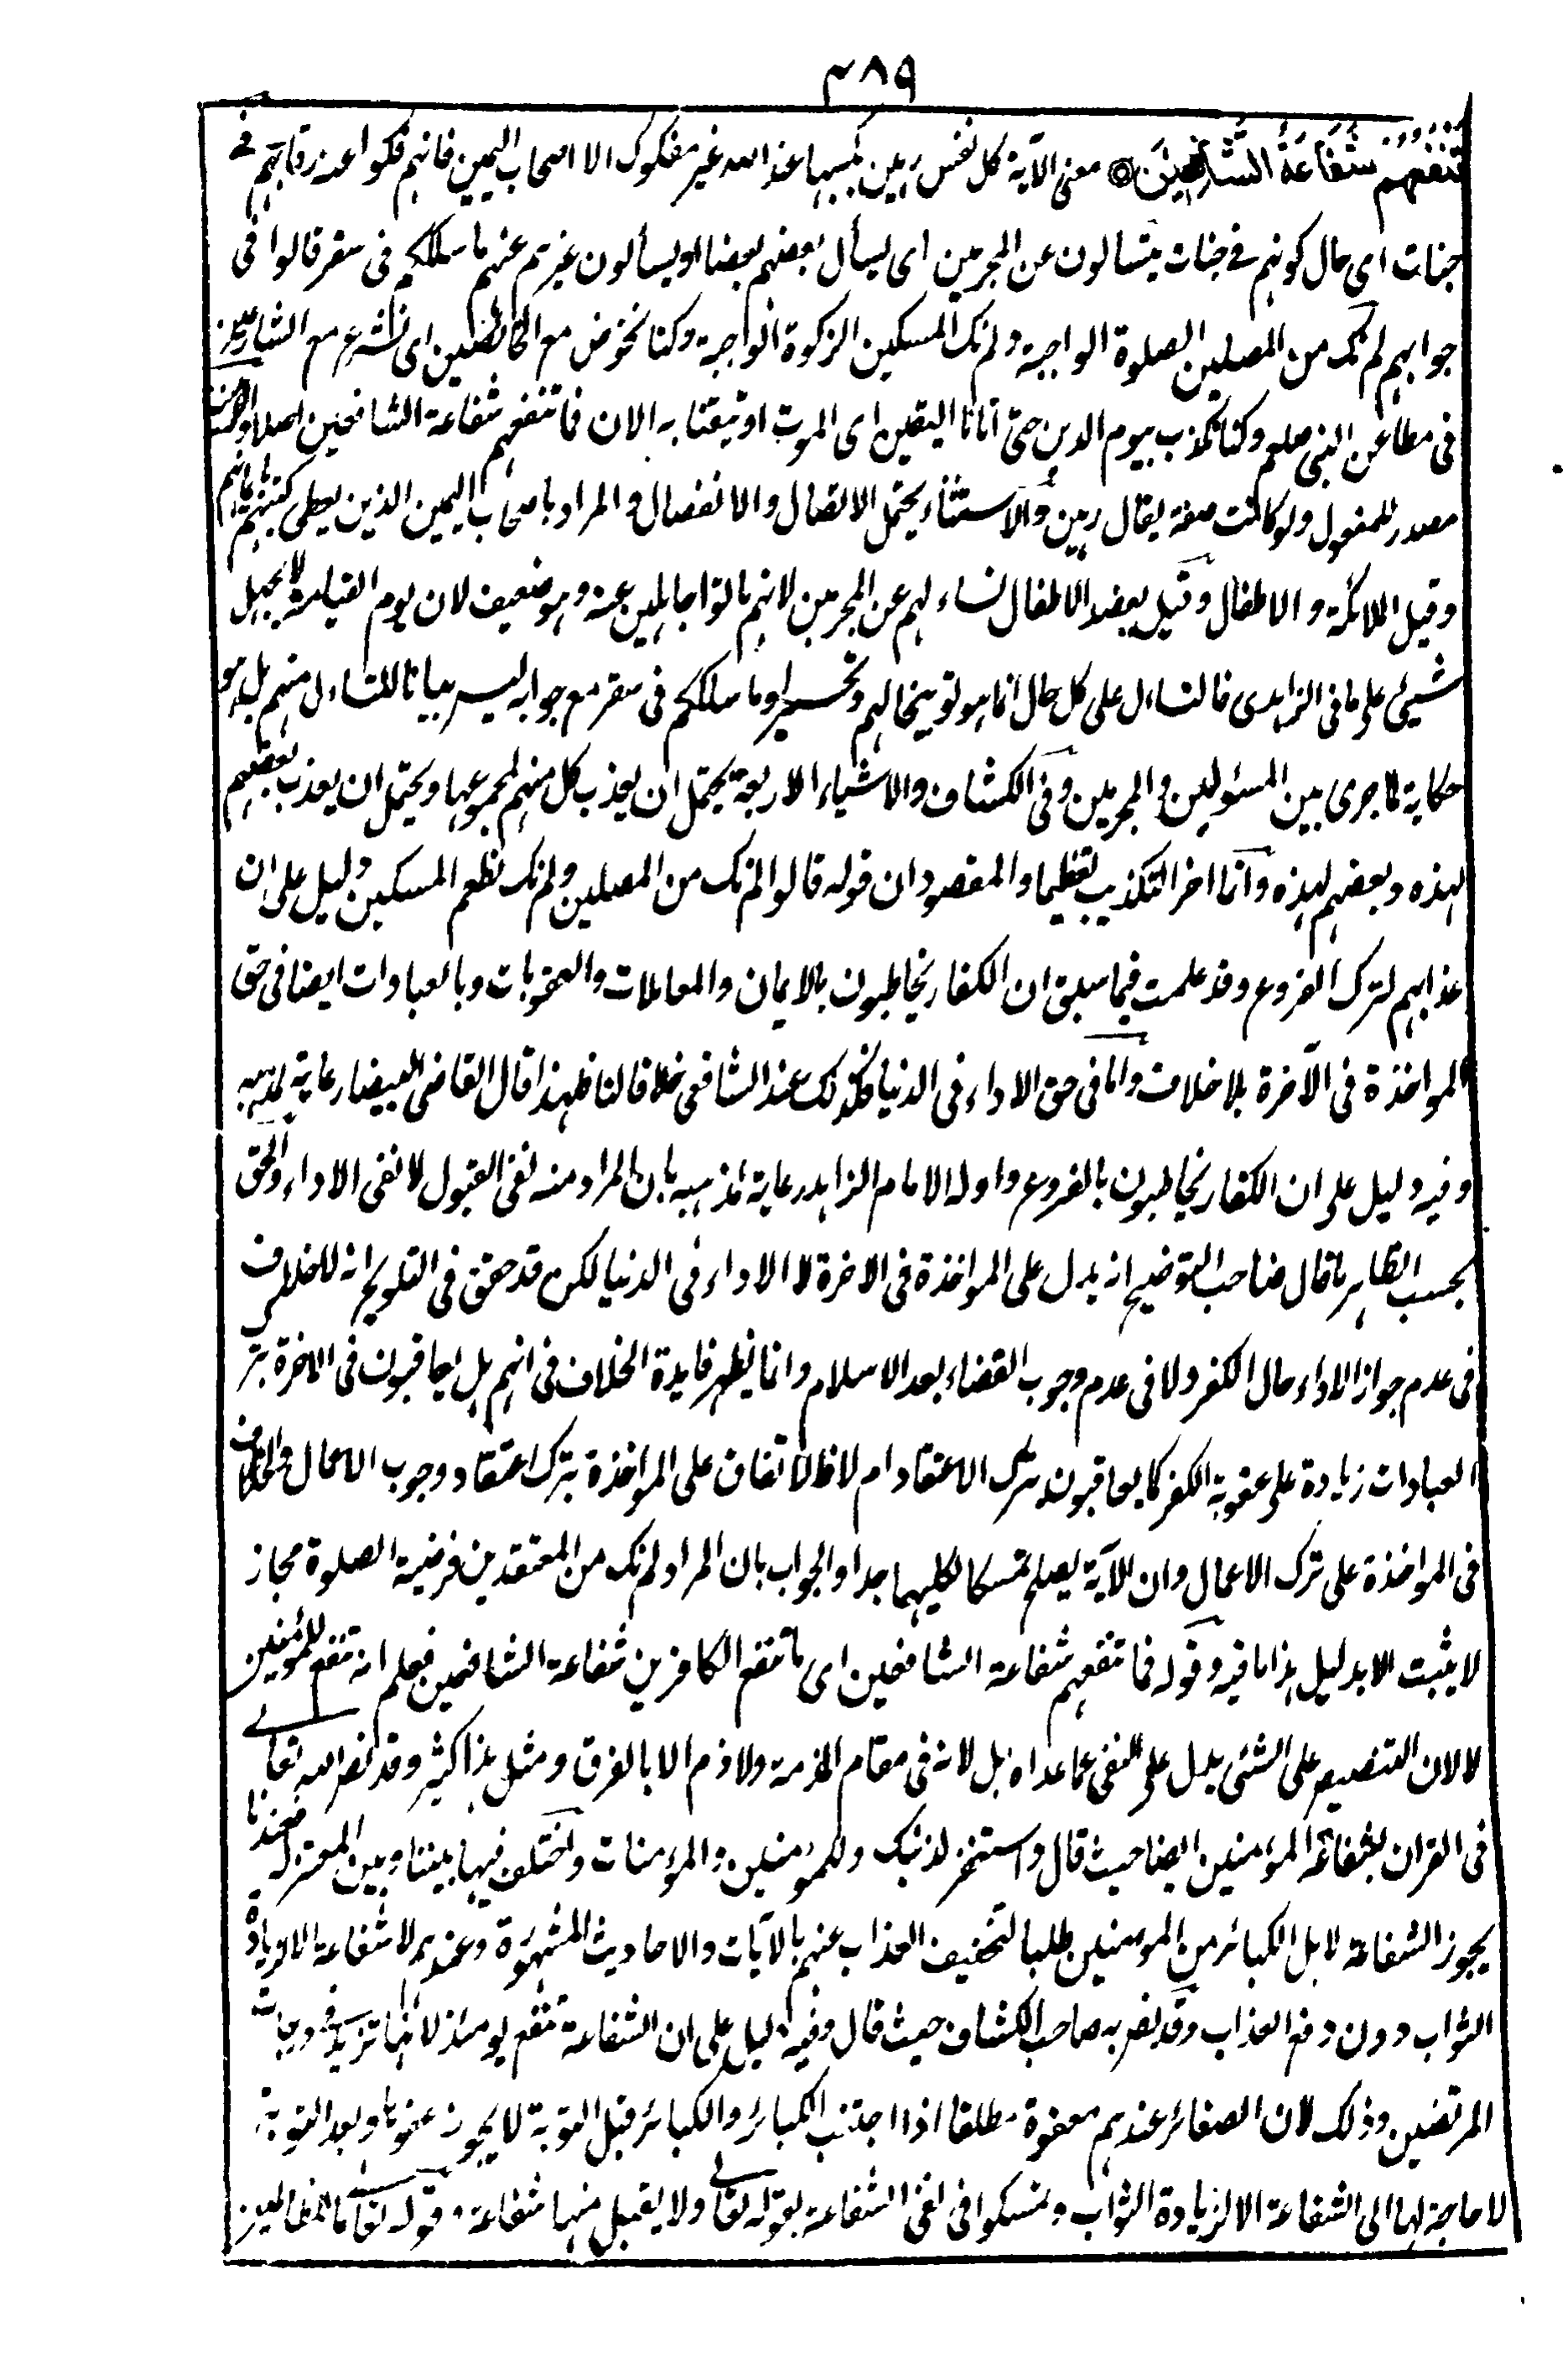 ٣٨٩
تَنْفَعُهُمْ شَفَاعَةُ الشَّافِعِيْنَ ۞ معنى الآية كل نفس رهين بكسبها عند الله غير مفكوك الا اصحاب اليمين فانهم فكوا عنه رقابهم في
جنات اى حال كونهم في جنات يتسالون عن المجرمين اى يسأل بعضهم بعضا او يسألون غيرهم عنهم ما سلككم فى سقر قالوا فى
جوابهم لم نك من المصلين الصلوة الواجبة ولم نك المسكين الزكوة الواجبة وكنا نخوض مع الخائضين اى نشرع مع الشارعين
فى مطاعن النبى صلعم وكنا نكذب بيوم الدين حتى اتانا اليقين اى الموت او تيقنا به الان فما تنفعهم شفاعة الشافعين اصلا والرهينة
مصدر للمفعول ولو كانت صفة يقال رهين والاستثناء يحتمل الاتصال والانفصال والمراد باصحاب اليمين الذين يعطى كتبهم بايمانهم
وقيل الملائكة والاطفال وقيل يعضد الاطفال تساءلهم عن المجرمين لانهم ماتوا جاهلين عنه وهو ضعيف لان يوم القيامة لا يجهل
شيئ على ما فى الزاهدى فالتساءل على كل حال انما هو توبيخا لهم وتحسيرا وما سلككم فى سقر مع جوابه ليس بيانا للتساءل منهم بل هو
حكاية لما جرى بين المسئولين والمجرمين وفى الكشاف والاشياء الاربعة يحتمل ان يعذب كل منهم لمجموعها ويحتمل ان يعذب بعضهم
لهذه وبعضهم لهذه وانما اخر التكذيب تعظيما والمقصود ان قوله قالوا لم نك من المصلين ولم نك نطعم المسكين دليل على ان
عذابهم لترك الفروع وقد علمت فيما سبق ان الكفار يخاطبون بالايمان والمعاملات والعقوبات وبالعبادات ايضا فى حق
المواخذة فى الآخرة بلا خلاف واما فى حق الاداء فى الدنيا فكذلك عند الشافعى خلافا لنا فلهذا قال القاضى البيضا رعاية لمذهبه
وفيه دليل على ان الكفار يخاطبون بالفروع واوله الامام الزاهد رعاية لمذهبه بان المراد منه نفى القبول لا نفى الاداء والحق
بحسب الظاهر ما قال صاحب التوضيح انه يدل على المواخذة فى الاخرة لا الاداء فى الدنيا لكن قد حقق فى التلويح انه لا خلاف
فى عدم جواز الاداء حال الكفر ولا فى عدم وجوب القضاء بعد الاسلام وانما يظهر فايدة الخلاف فى انهم هل يعاقبون فى الاخرة بترك
العبادات زيادة على عقوبة الكفر كما يعاقبون بترك الاعتقاد ام لا فالاتفاق على المواخذة بترك اعتقاد وجوب الاعمال والخلاف
فى المواخذة على ترك الاعمال وان الآية يصلح تمسكا لكليهما جدا والجواب بان المراد لم نك من المعتقدين فرضية الصلوة مجاز
لا يثبت الا بدليل هذا ما فيه وقوله فما تنفعهم شفاعة الشافعين اى ما تنفع الكافرين شفاعة الشافعين فيعلم انه تنفع للمؤمنين
لا لان التنصيص على الشئى يدل على النفى عما عداه بل لانه فى مقام المذمة ولا ذم الا بالفرق ومثل هذا كثير وقد نص الله تعالى
فى القران بشفاعة المؤمنين ايضا حيث قال واستغفر لذنبك وللمؤمنين والمؤمنات واختلف فيها بيننا وبين المعتزلة فعندنا
يجوز الشفاعة لاهل الكبائر من المومنين طلبا لتخفيف العذاب عنهم بالآيات والاحاديث المشهورة وعندهم لا شفاعة الا لزيادة
الثواب دون دفع العذاب وقد نص به صاحب الكشاف حيث قال وفيه دليل على ان الشفاعة تنفع يومئذ لانها تزيد فى درجات
المرتضين وذلك لان الصغائر عندهم معفوة مطلقا اذا اجتنب الكبائر والكبائر قبل التوبة لا يجوز عفوها وبعد التوبة
لا حاجة لها الى الشفاعة الا لزيادة الثواب وتمسكوا فى نفى الشفاعة بقوله تعالى ولا يقبل منها شفاعة وقوله تعالى ما للظالمين